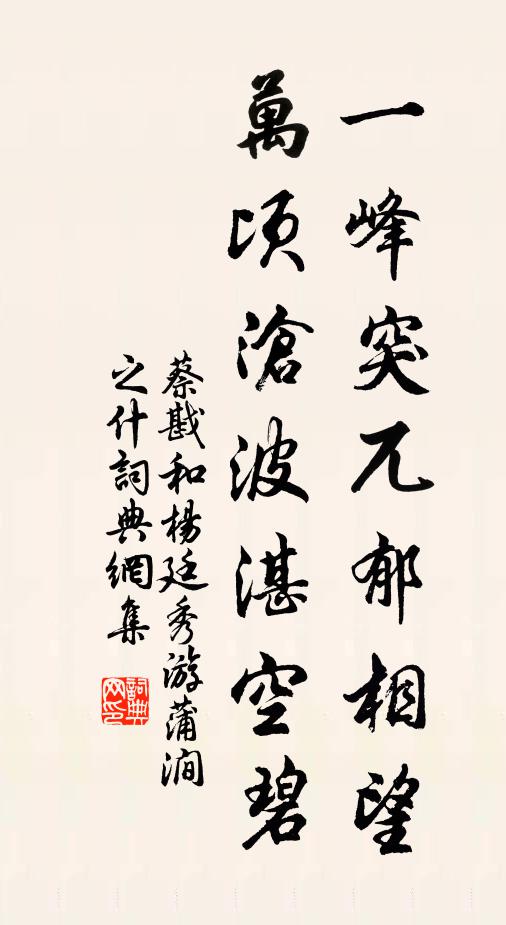 一峰突兀郁相望
萬頃滄波湛空碧
蔡戡和楊廷秀游蒲澗
之什詞典網集
詞典网印